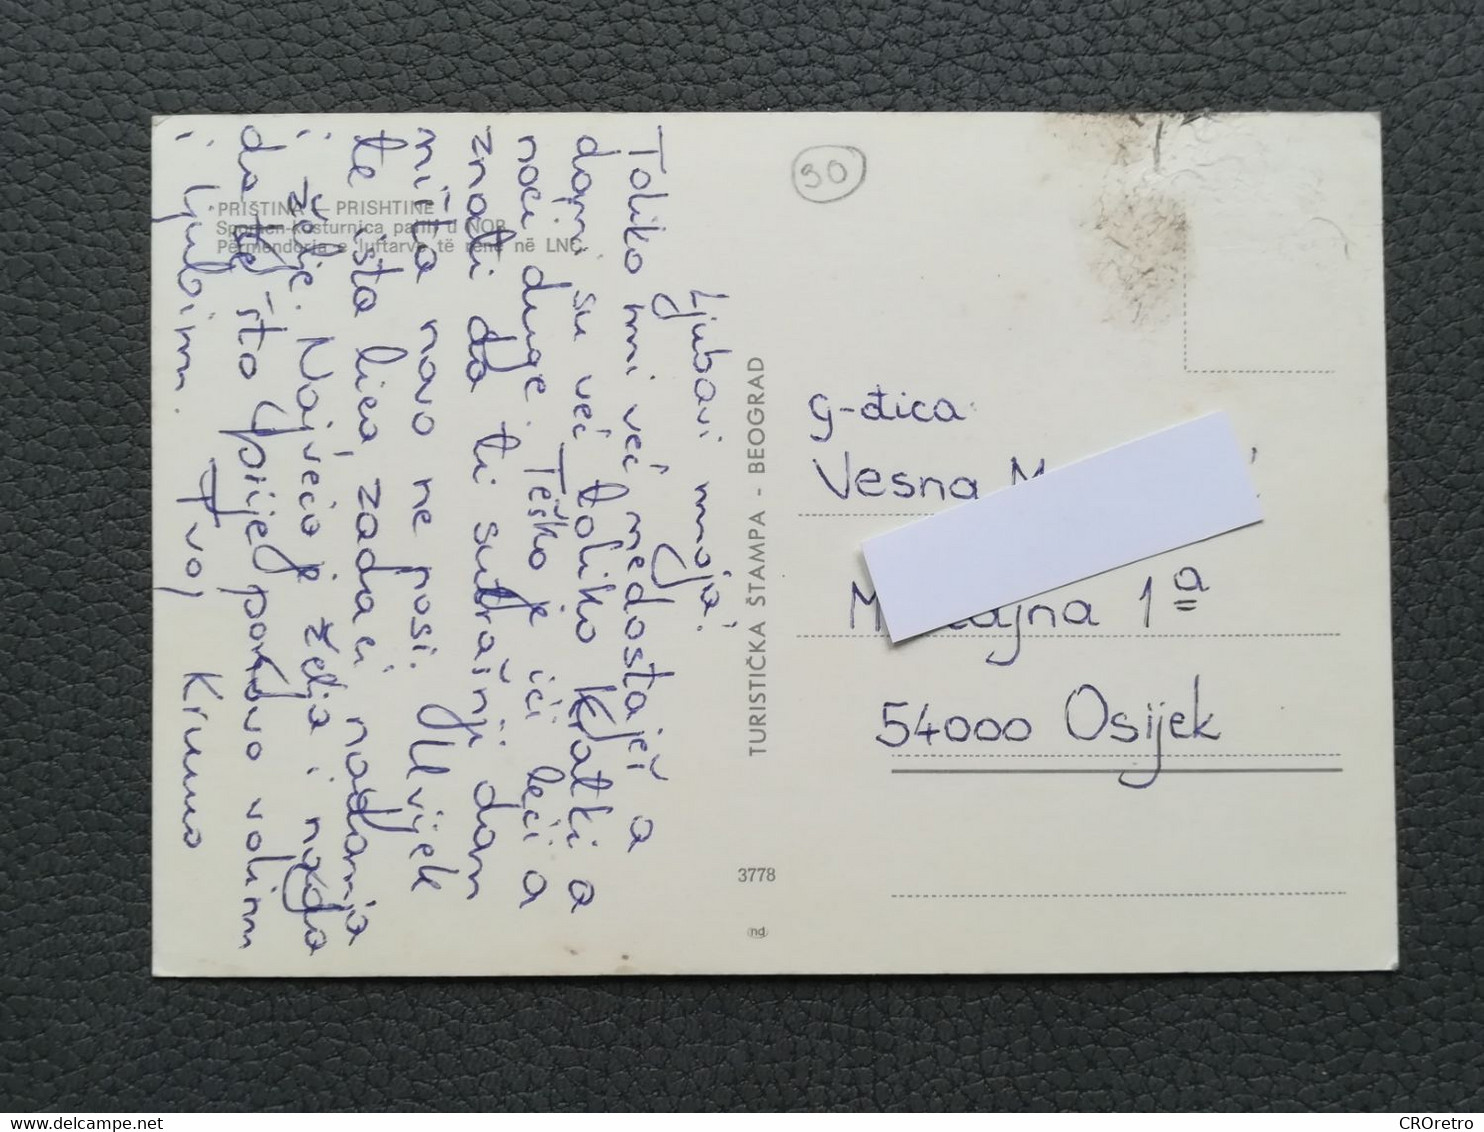 PRIŠTINA — PRISHTINE
Spomen-kosturnica palih u NOR
Përmendorja e luftarve të rënë në LNÇ
Ljubavi moja!
Toliko mi već nedostaješ a
dani su već toliko kratki a
noći duge. Teško je ići leći a
znati da ti sutrašnji dan
ništa novo ne nosi. Uvijek
te ista lica, zadaci, nadanja
i želje. Najveća je želja i nada
da te što prije ponovo volim
i ljubim.
Tvoj Kruno
TURISTIČKA ŠTAMPA - BEOGRAD
3778
nd
30
g-đica
Vesna M
M jna 1ª
54000 Osijek
CROretro